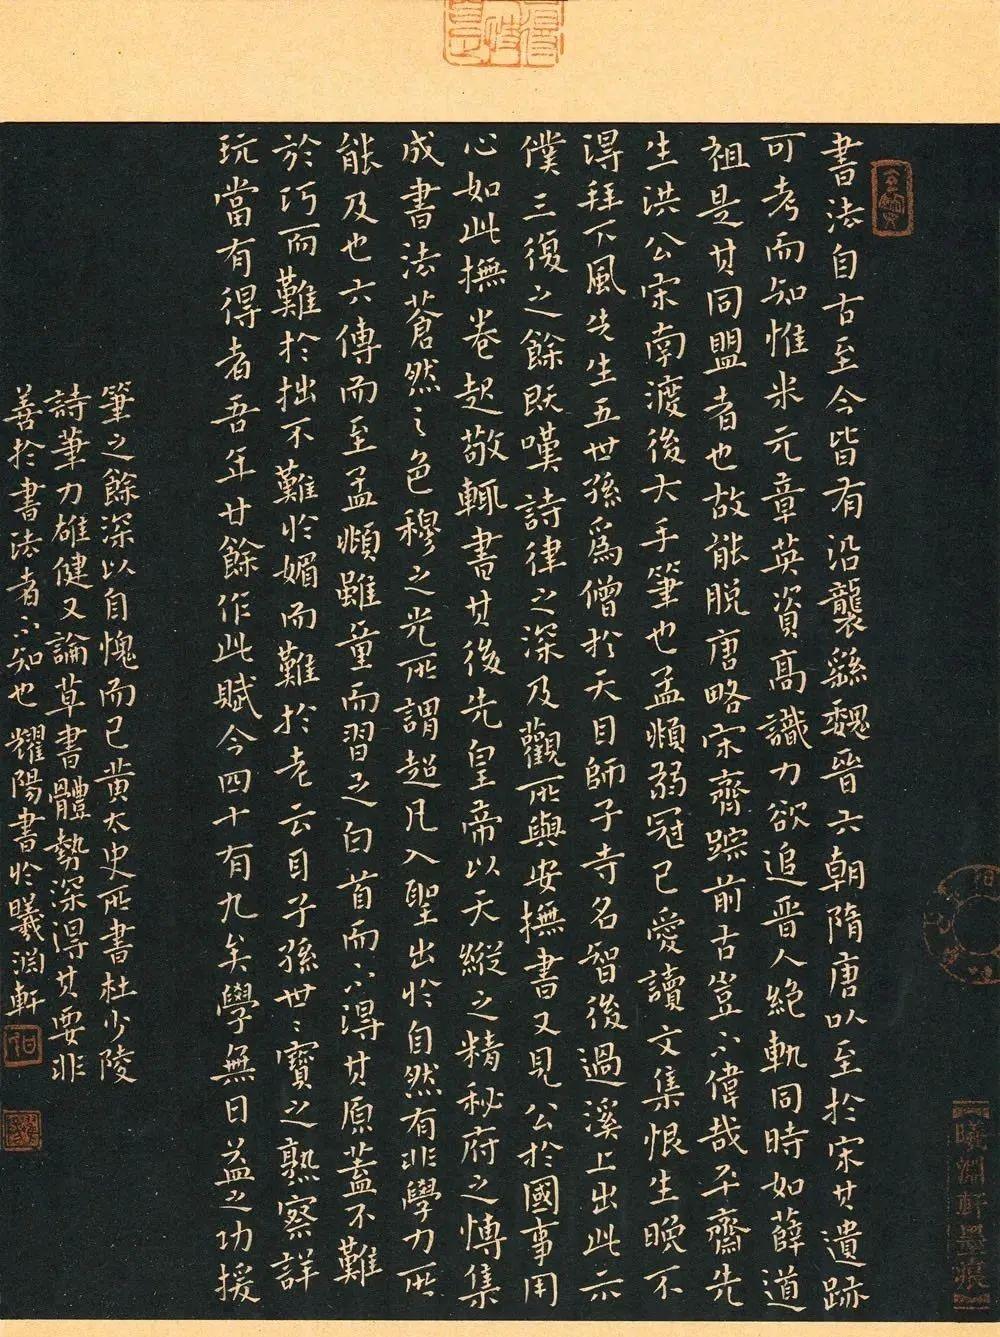 書法自古至今皆有沿襲繇魏晉六朝隋唐以至於宋其遺跡
可考而知惟米元章英資高識力欲追晋人絶軌同時如薛道
祖是其同盟者也故能脱唐略宋齊踪前古豈不偉哉平齋先
生洪公宋南渡後大手筆也孟頫弱冠已愛讀文集恨生晚不
得拜下風先生五世孫為僧於天目師子寺名智後過溪上出此示
僕三復之餘既嘆詩律之深及觀所與安撫書又見公於國事用
心如此撫卷起敬輒書其後先皇帝以天縱之精秘府之博集
成書法蒼然之色穆之光所謂超凡入聖出於自然有非學力所
能及也六傳而至孟頫雖童而習之白首而不得其原蓋不難
於巧而難於拙不難於媚而難於老云目子孫世〻寶之熟察詳
玩當有得者吾年廿餘作此賦今四十有九矣學無日益之功援
筆之餘深以自愧而已黄太史所書杜少陵
詩筆力雄健又論草書體勢深得其要非
善於書法者不知也耀陽書於曦淵軒
曦淵軒墨痕